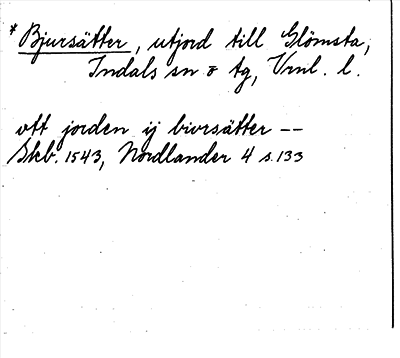 * Bjursätter, utjord till Glömsta,
Indals sn o tg, Vrnl. l.
vtt jorden ij biwrsätter --
Skb. 1543, Nordlander 4 s. 133